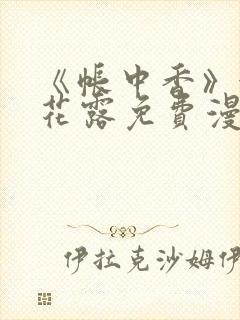 《帐中香》
花露免费漫
伊拉克沙姆伊